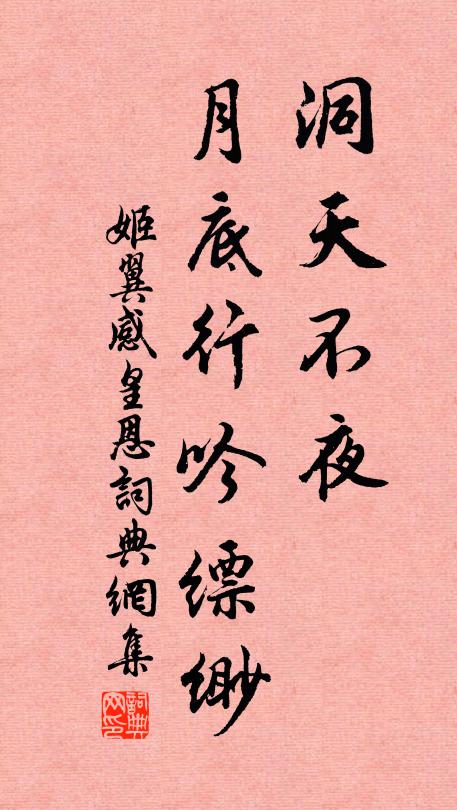 洞天不夜
月底行吟縹緲
姬翼感皇恩詞典網集
詞典網印